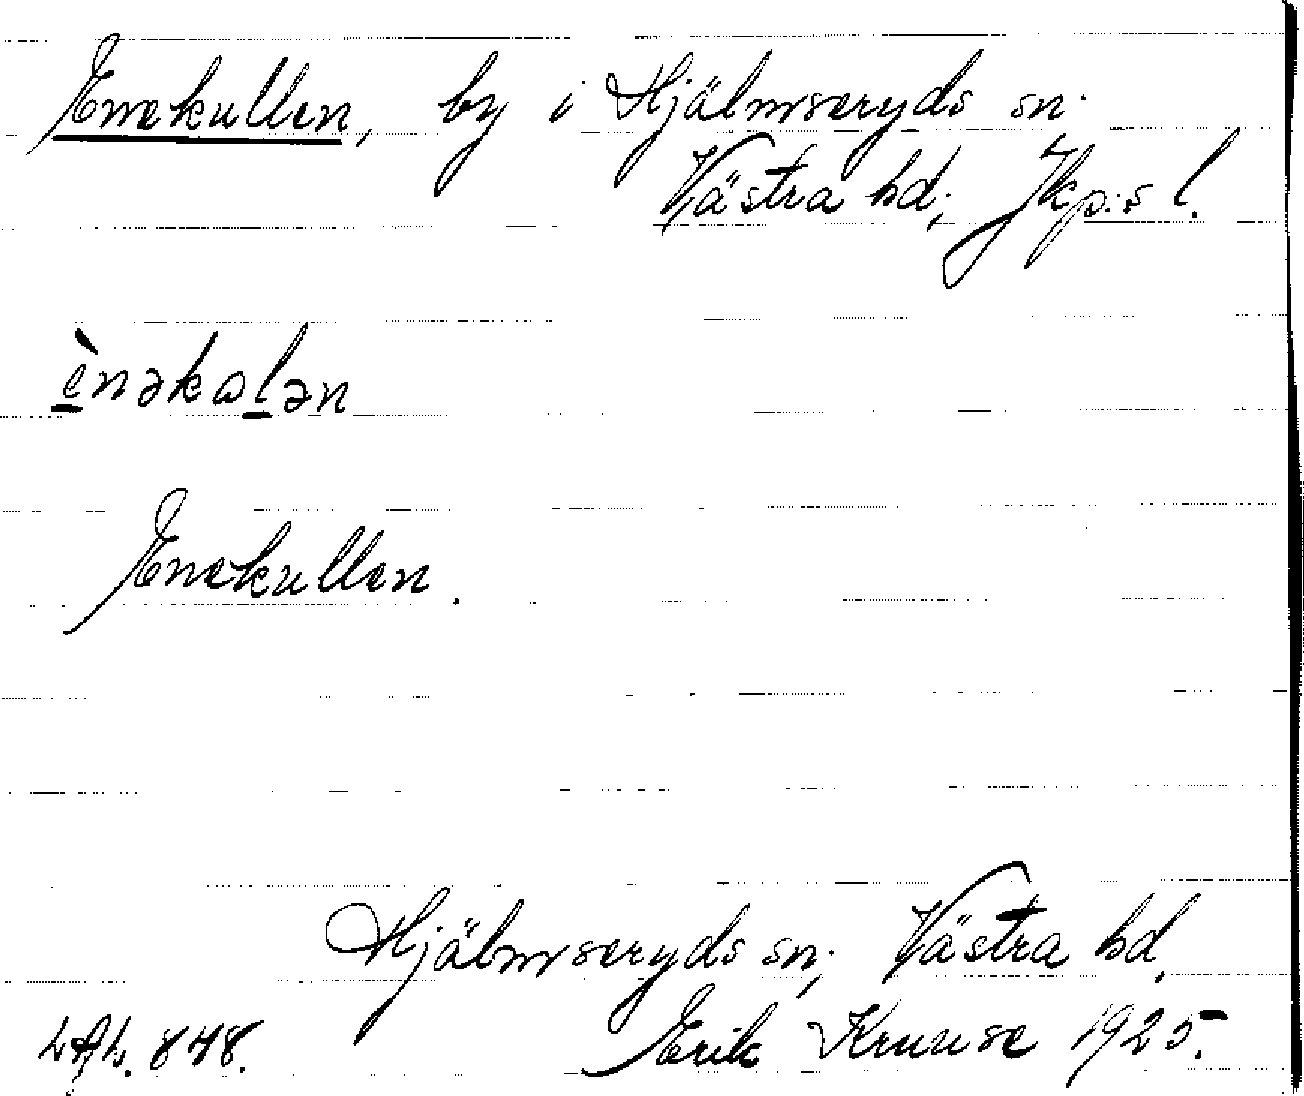 Enekullen, by i Hjälmseryds sn.
Västra hd; Jkp:s l.
ènəkɷlən
Enekullen.
Hjälmseryds sn; Västra hd.
LAL. 848. Erik Kruuse 1925.